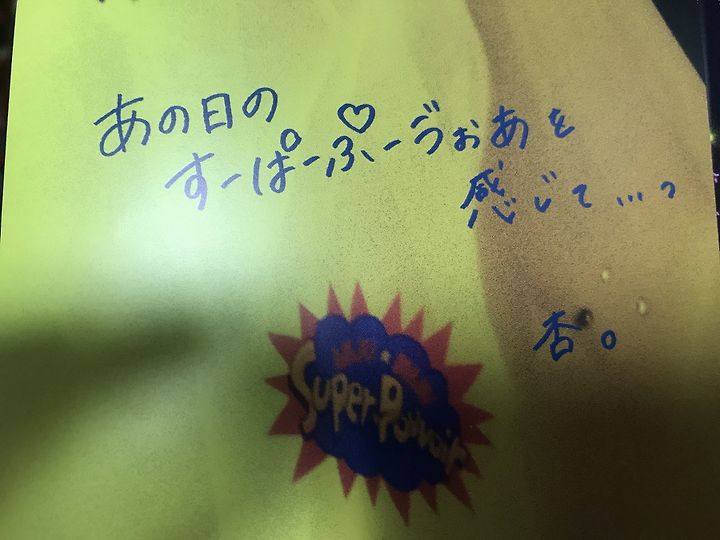 あの日の
すーぱーぷ♡ーゔぉあを
感じて…っ
杏。
Super Pouvoir